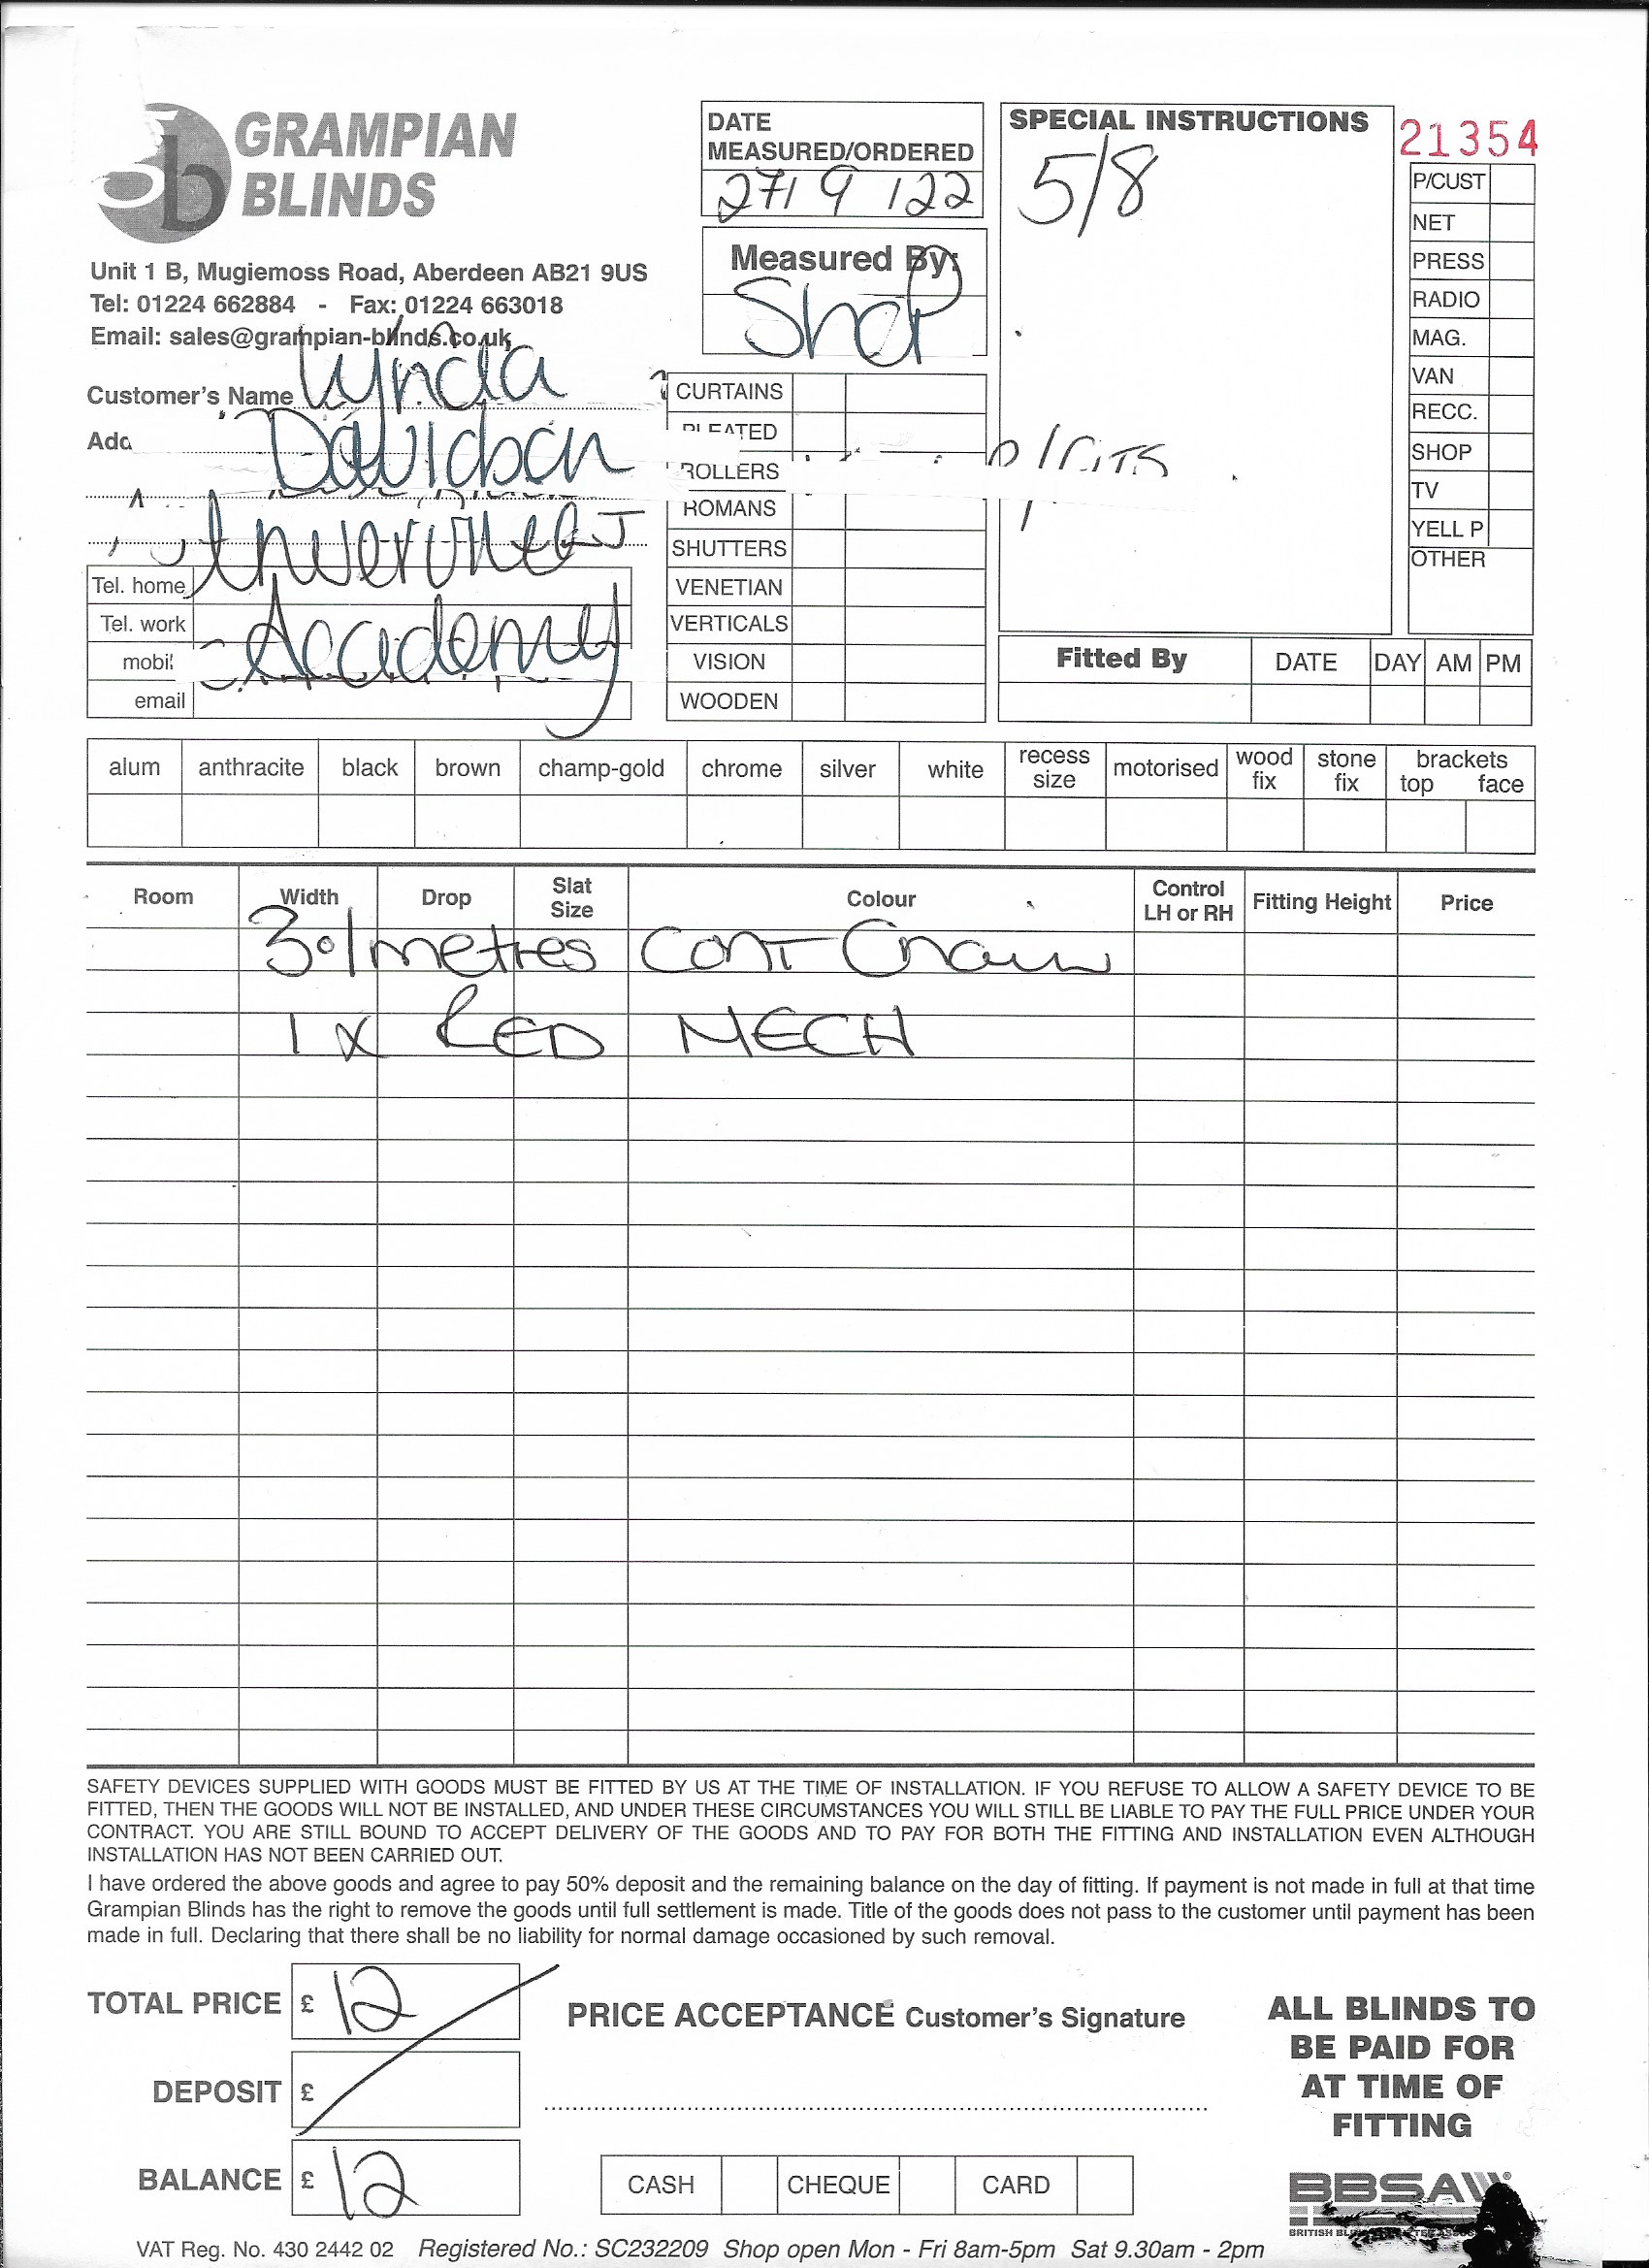 GRAMPIAN
BLINDS
Unit 1 B, Mugiemoss Road, Aberdeen AB21 9US
Tel: 01224 662884 - Fax: 01224 663018
Email: sales@grampian-blinds.co.uk
Customer's Name Lynda
Davidson
Academy
Tel. home
Tel. work
email
DATE
MEASURED/ORDERED
27/9/22
Measured By:
Shop
CURTAINS
PLEATED
ROLLERS
ROMANS
SHUTTERS
VENETIAN
VERTICALS
VISION
WOODEN
SPECIAL INSTRUCTIONS
5/8
21354
P/CUST
NET
PRESS
RADIO
MAG.
VAN
RECC.
SHOP
TV
YELL P
OTHER
Fitted By DATE DAY AM PM
alum anthracite black brown champ-gold chrome silver white recess size motorised wood fix stone fix brackets top face
Room Width Drop Slat Size Colour Control LH or RH Fitting Height Price
3·1 metres cont Chain
1 x RED MECH
SAFETY DEVICES SUPPLIED WITH GOODS MUST BE FITTED BY US AT THE TIME OF INSTALLATION. IF YOU REFUSE TO ALLOW A SAFETY DEVICE TO BE
FITTED, THEN THE GOODS WILL NOT BE INSTALLED, AND UNDER THESE CIRCUMSTANCES YOU WILL STILL BE LIABLE TO PAY THE FULL PRICE UNDER YOUR
CONTRACT. YOU ARE STILL BOUND TO ACCEPT DELIVERY OF THE GOODS AND TO PAY FOR BOTH THE FITTING AND INSTALLATION EVEN ALTHOUGH
INSTALLATION HAS NOT BEEN CARRIED OUT.
I have ordered the above goods and agree to pay 50% deposit and the remaining balance on the day of fitting. If payment is not made in full at that time
Grampian Blinds has the right to remove the goods until full settlement is made. Title of the goods does not pass to the customer until payment has been
made in full. Declaring that there shall be no liability for normal damage occasioned by such removal.
TOTAL PRICE £ 12
DEPOSIT £
BALANCE £ 12
PRICE ACCEPTANCE Customer's Signature
CASH CHEQUE CARD
ALL BLINDS TO
BE PAID FOR
AT TIME OF
FITTING
BBSA
BRITISH
VAT Reg. No. 430 2442 02 Registered No.: SC232209 Shop open Mon - Fri 8am-5pm Sat 9.30am - 2pm